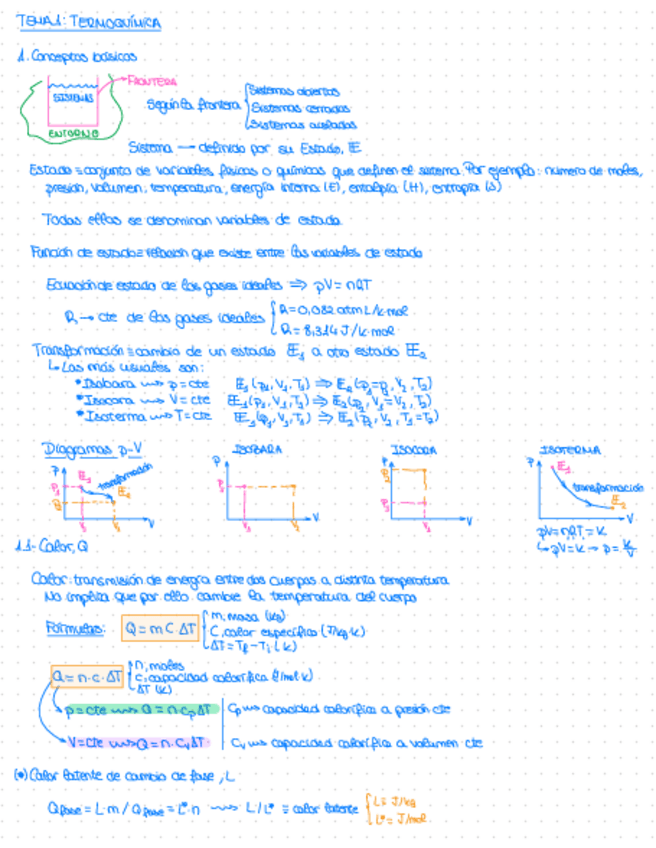 TEMA 1: TERMOQUÍMICA
1. Conceptos básicos
FRONTERA
SISTEMAS
ENTORNO
Según la frontera { Sistemas abiertos
Sistemas cerrados
Sistemas aislados
Sistema → definido por su Estado, E
Estado ≡ conjunto de variables físicas o químicas que definen el sistema. Por ejemplo: número de moles,
presión, volumen, temperatura, energía interna (E), entalpía (H), entropía (S)
Todas ellas se denominan variables de estado
Función de estado ≡ relación que existe entre las variables de estado
Ecuación de estado de los gases ideales ⇒ pV = nRT
R → cte de los gases ideales { R = 0,082 atm L/k·mol
R = 8,314 J/k·mol
Transformación ≡ cambio de un estado E₁ a otro estado E₂
↳ Las más usuales son:
* Isobara ⟿ p = cte E₁(p₁, V₁, T₁) ⇒ E₂(p₂=p₁, V₂, T₂)
* Isocora ⟿ V = cte E₁(p₁, V₁, T₁) ⇒ E₂(p₂, V₁=V₂, T₂)
* Isoterma ⟿ T = cte E₁(p₁, V₁, T₁) ⇒ E₂(p₂, V₂, T₁=T₂)
Diagramas p-V ISOBARA ISOCORA ISOTERMA
P E₁ transformación E₂ P₁ P₂ V₁ V₂ V
P P₁ V₁ V₂ V
P P₂ P₁ V₁ V
P E₁ transformación E₂ V
pV = nRT₁ = K
↳ pV = K → p = K/V
1.1- Calor, Q
Calor: transmisión de energía entre dos cuerpos a distinta temperatura
No implica que por ello cambie la temperatura del cuerpo
Fórmulas: Q = m C ΔT { m, masa (kg)
C, calor específico (J/kg·k)
ΔT = Tf - Ti (k)
Q = n·c·ΔT { n, moles
c, capacidad calorífica (J/mol·k)
ΔT (k)
p = cte ⟿ Q = n·Cp ΔT | Cp ⟿ capacidad calorífica a presión cte
V = cte ⟿ Q = n·Cv ΔT | Cv ⟿ capacidad calorífica a volumen cte
(*) Calor latente de cambio de fase, L
Qfase = L·m / Qfase = L*·n ⟿ L/L* ≡ calor latente { L = J/kg
L* = J/mol